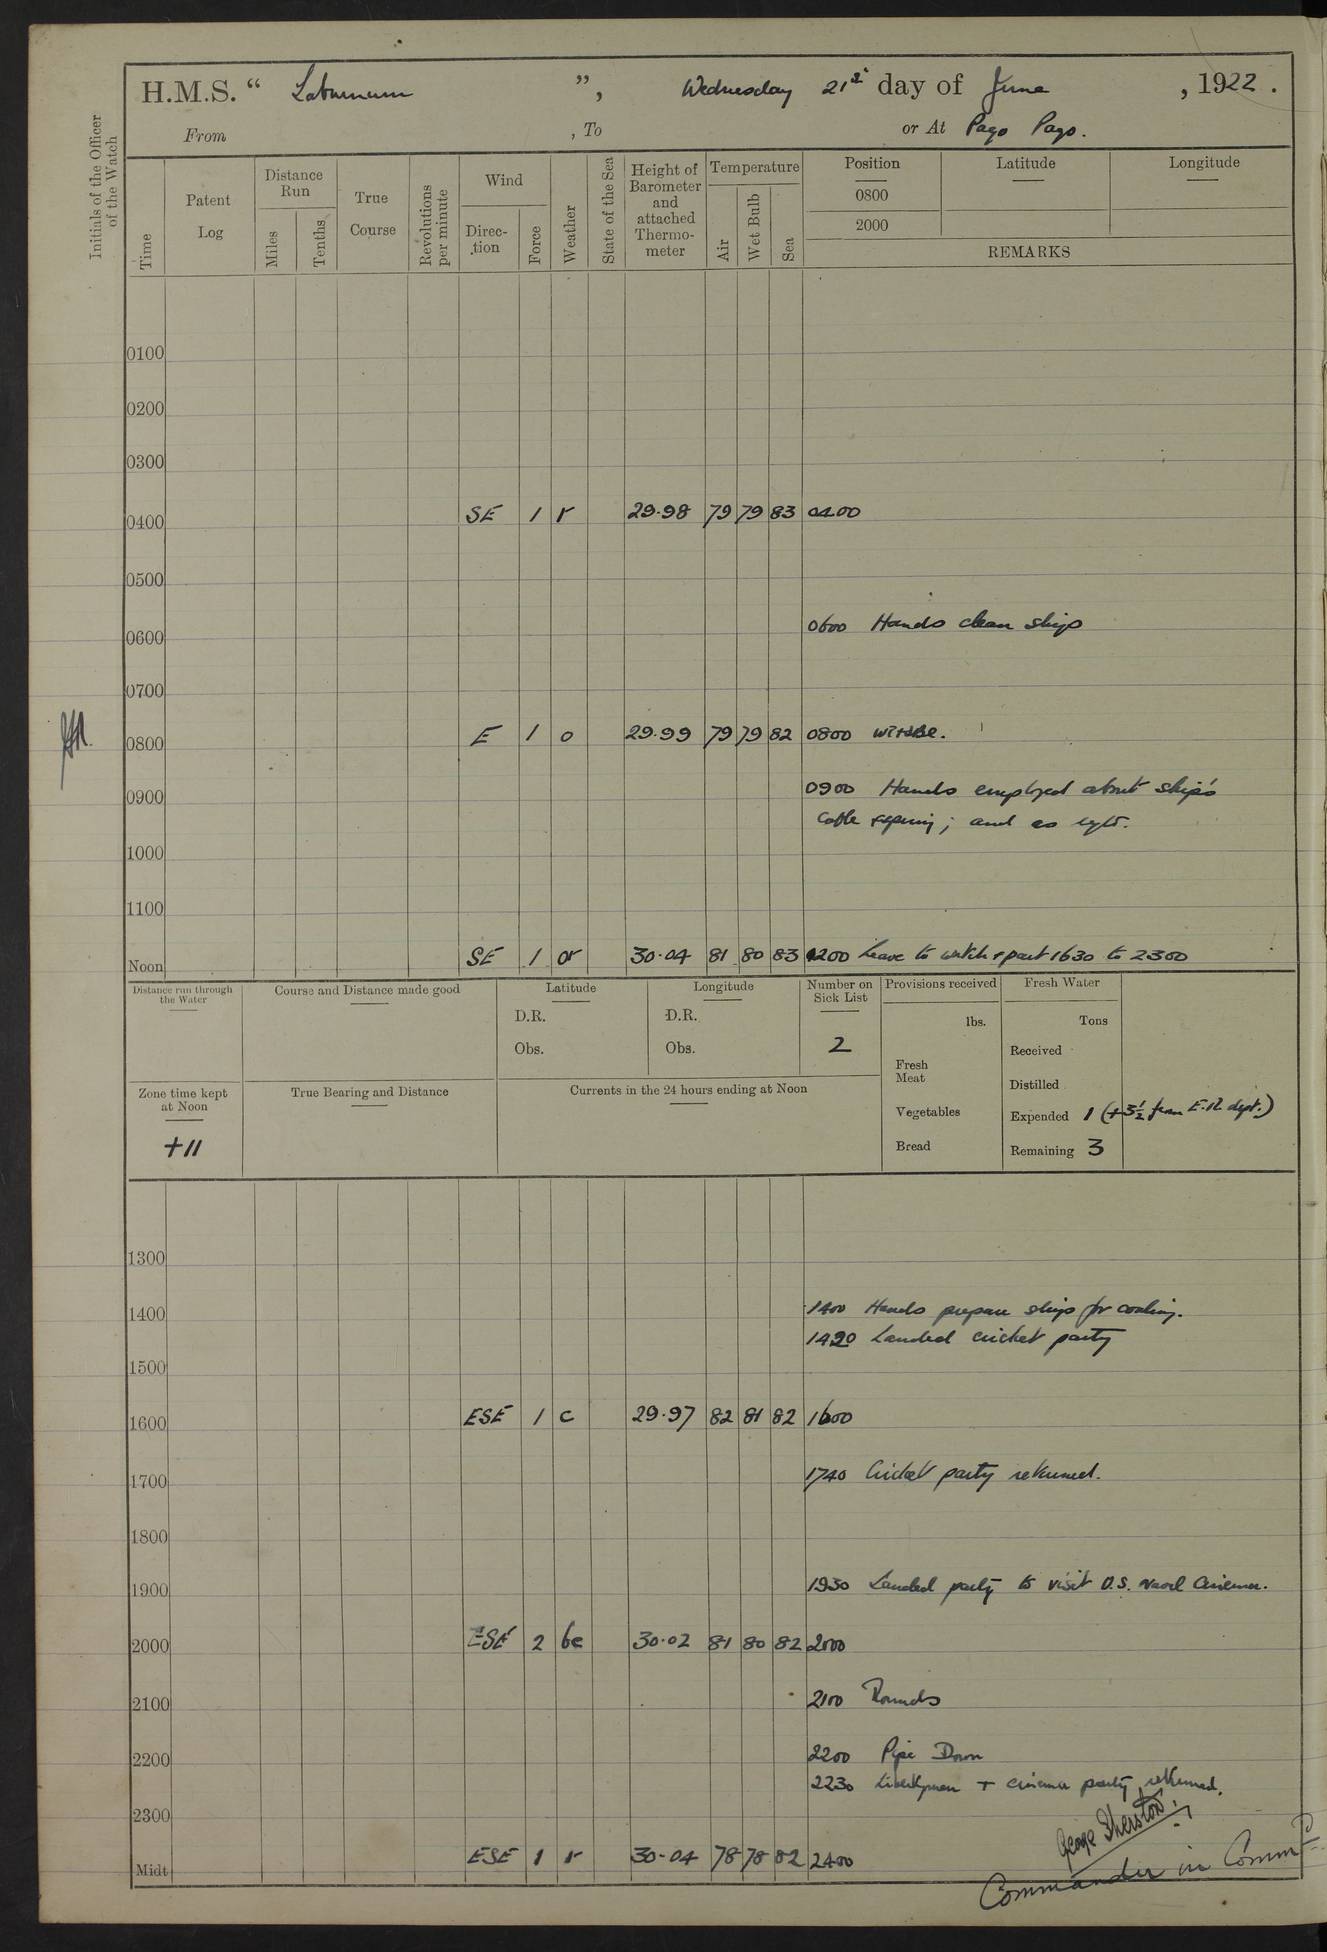 H.M.S. " Laburnum ", Wednesday 21st day of June, 1922.
From , To or At Pago Pago.
Initials of the Officer of the Watch
Time
Patent Log
Distance Run
Miles
Tenths
True Course
Revolutions per minute
Wind
Direc-tion
Force
Weather
State of the Sea
Height of Barometer and attached Thermo-meter
Temperature
Air
Wet Bulb
Sea
Position
0800
2000
Latitude
Longitude
REMARKS
0100
0200
0300
0400 SE 1 r 29.98 79 79 83 0400
0500
0600 0600 Hands clean ship
0700
0800 E 1 o 29.99 79 79 82 0800
0900 0900 Hands employed about ship's
cable ; and as
1000
1100
Noon SE 1 or 30.04 81 80 83 1200 Leave to watch & part 1630 to 2300
Distance run through the Water
Course and Distance made good
Latitude
D.R.
Obs.
Longitude
D.R.
Obs.
Number on Sick List
2
Provisions received
lbs.
Fresh Meat
Vegetables
Bread
Fresh Water
Tons
Received
Distilled
Expended 1 (+3½ from E.R. dept.)
Remaining 3
Zone time kept at Noon
+11
True Bearing and Distance
Currents in the 24 hours ending at Noon
1300
1400 1400 Hands prepare ship for coaling.
1420 Landed cricket party
1500
1600 ESE 1 c 29.97 82 81 82 1600
1700 1740 Cricket party returned.
1800
1900 1930 Landed party to visit U.S. Naval Cinema.
2000 ESE 2 bc 30.02 81 80 82 2000
2100 2100 Rounds
2200 2200 Pipe Down
2230 Libertymen + cinema party returned.
2300
Midt ESE 1 r 30.04 78 78 82 2400
George Thurston
Commander in Commd